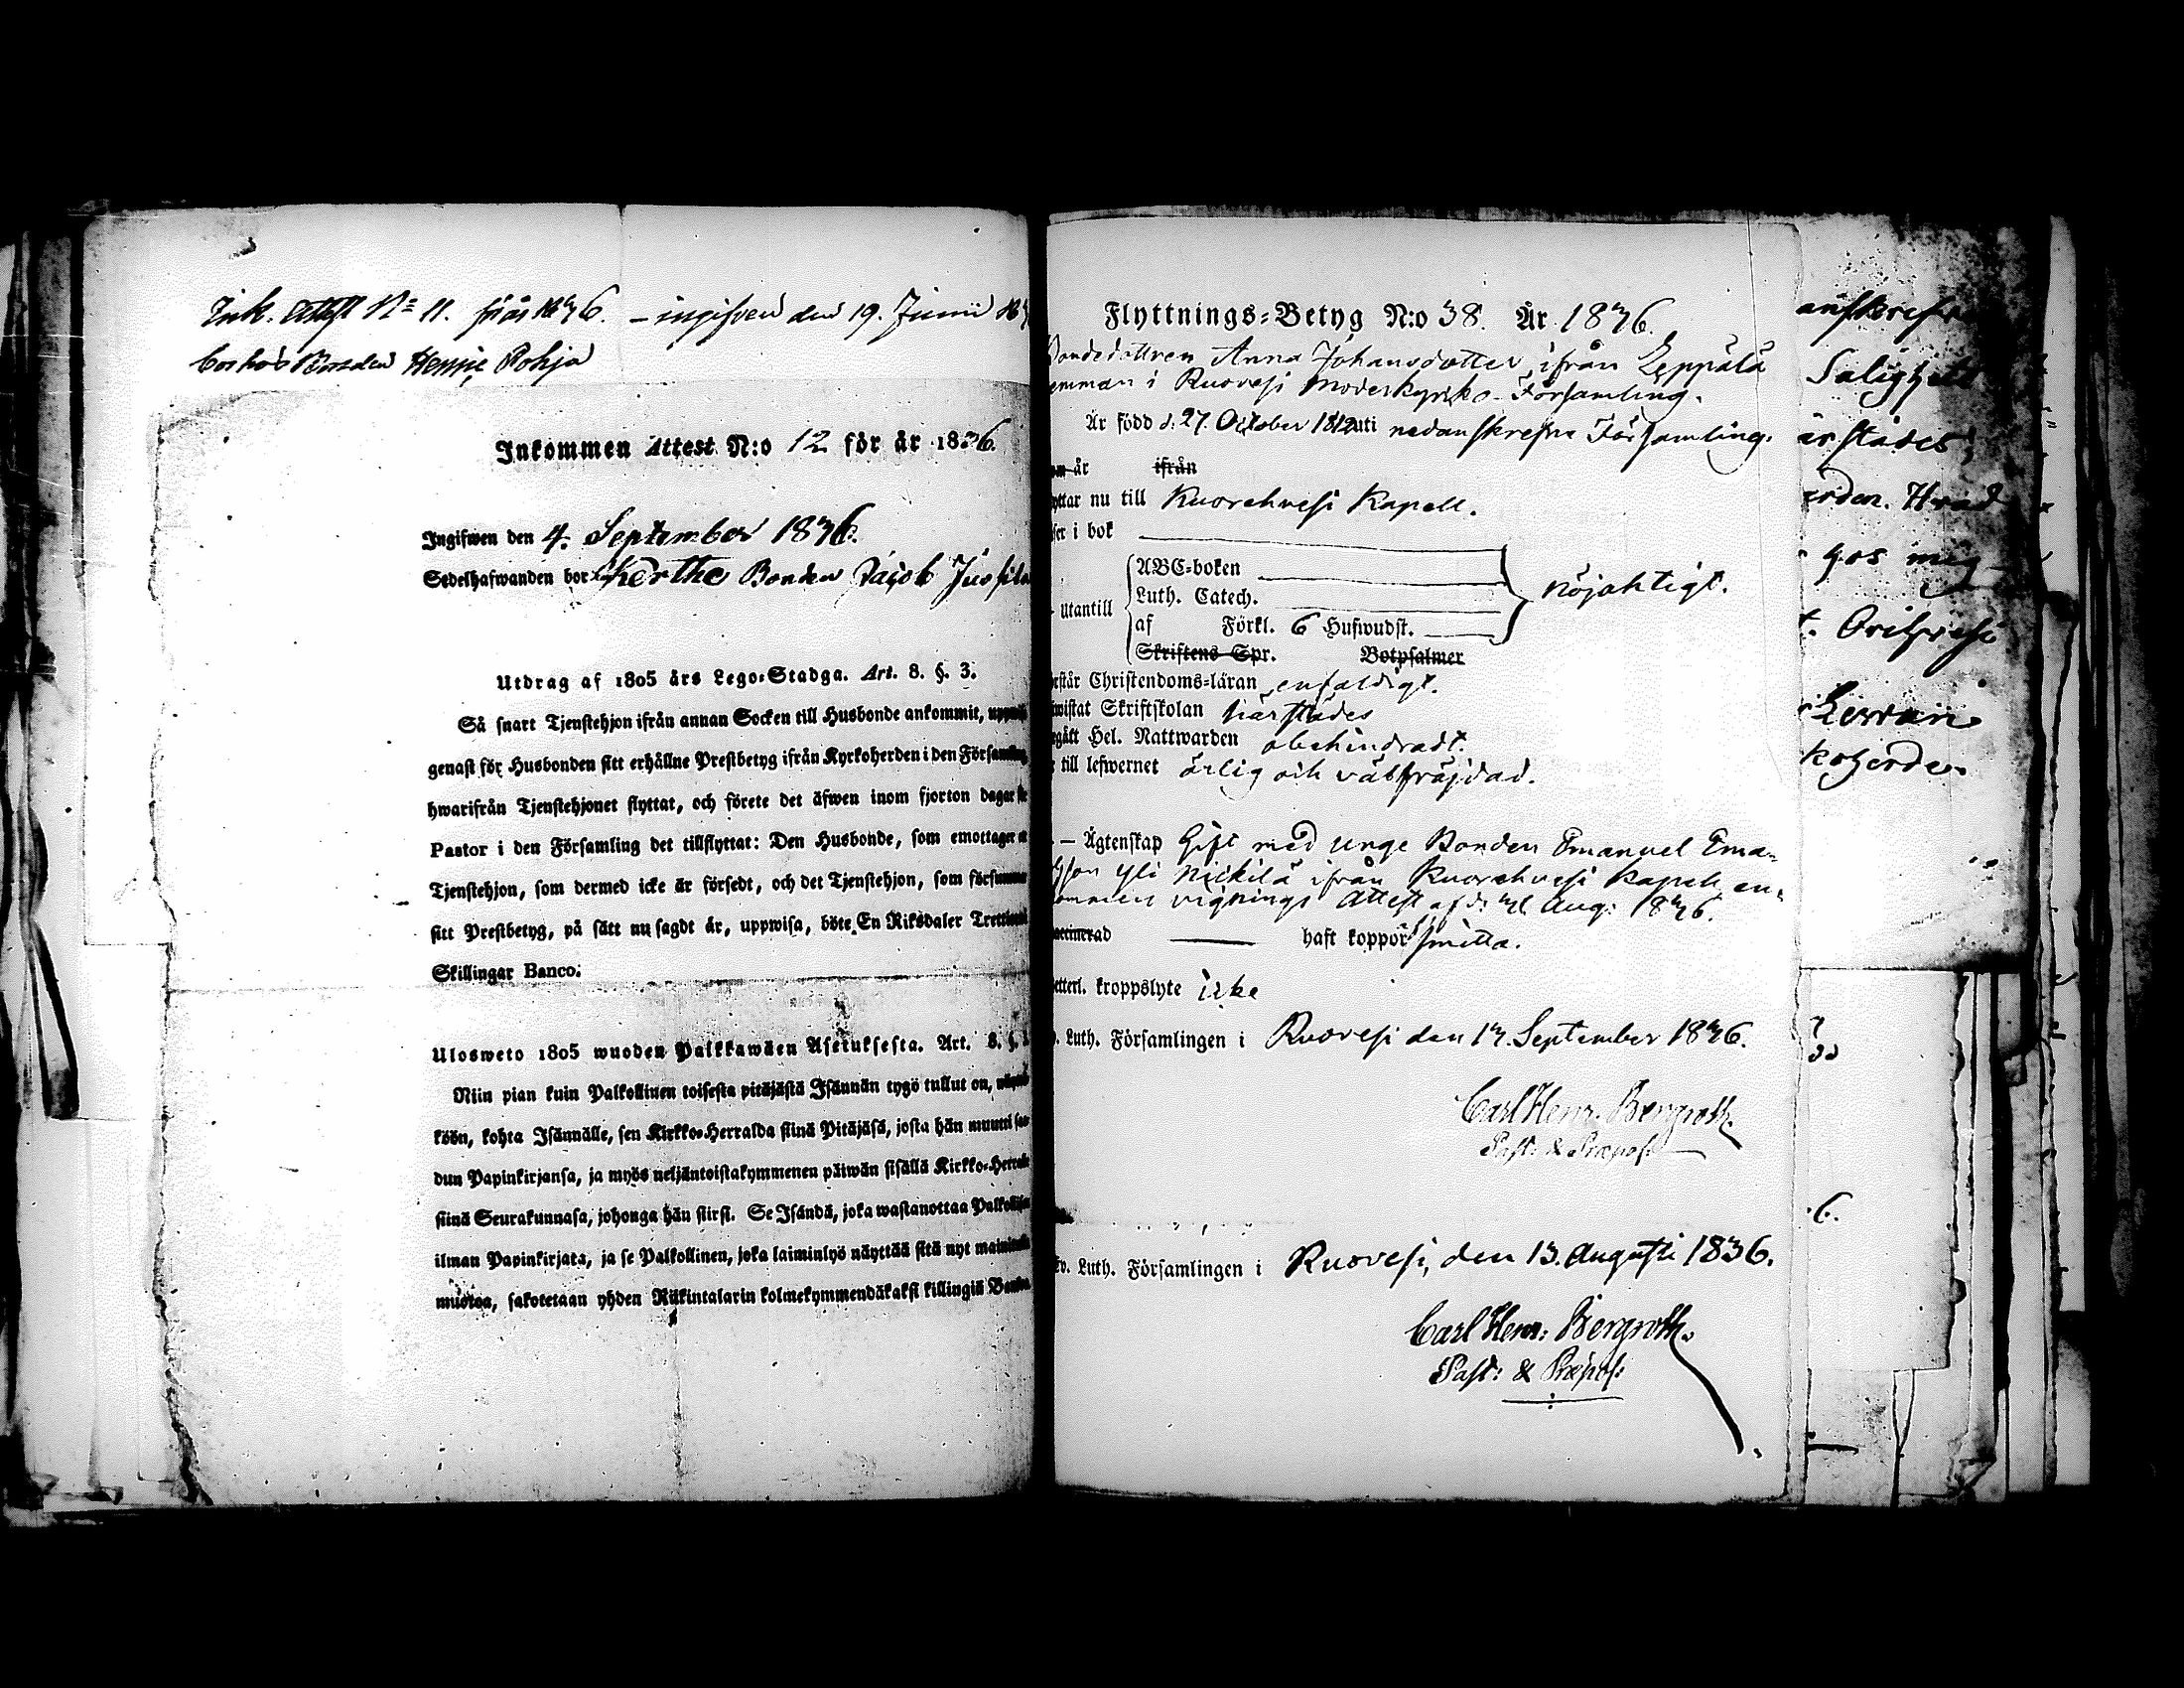 Ink. Attest No 11. för år 1836. – ingifven den 19. Junii
bor hos Bonden Heming Pohja
Inkommen Attest N:o 12 för år 1836.
Ingifwen den 4. September 1836.
Sedelhafwanden bor Bonden Jacob Jussila
Utdrag af 1805 års Lego-Stadga. Art. 8. §. 3.
Så snart Tjenstehjon ifrån annan Socken till Husbonde ankommit,
genast för Husbonden sitt erhållne Prestbetyg ifrån Kyrkoherden i den Församling
hwarifrån Tjenstehjonet flyttat, och förete det äfwen inom fjorton dagar
Pastor i den Församling det tillflyttat: Den Husbonde, som emottager
Tjenstehjon, som dermed icke är försedt, och det Tjenstehjon, som försummar
sitt Prestbetyg, på sätt nu sagdt är, uppwisa, böte En Riksdaler Trettiotvå
Skillingar Banco.
Ulosweto 1805 wuoden Palkkawäen Asetuksesta. Art. 8. §.
Niin pian kuin Palkollinen toisesta pitäjästä Isännän tygö tullut on,
köön, kohta Isännälle, sen Kirkko-Herralda siinä Pitäjäsä, josta hän muutti
dun Papinkirjansa, ja myös neljäntoistakymmenen päiwän sisällä Kirkko-Herralle
siinä Seurakunnasa, johonga hän siirsi. Se Isändä, joka wastanottaa Palkollisen
ilman Papinkirjata, ja se Palkollinen, joka laiminlyö näyttää sitä nyt mainitulla
muotoa, sakotetaan yhden Riikintalarin kolmekymmendäkaksi killingiä Bankoa
Flyttnings-Betyg N:o 38. År 1836.
Bondedottren Anna Johansdotter, ifrån Leppälä
hemman i Ruovesi Moderkyrko-Församling.
Är född d: 27. October 1812 uti nedanskrefne Församling.
år ifrån
flyttar nu till Kuorehvesi Kapell.
i bok
ABC-boken
Utantill Luth. Catech. nöjaktigt.
af Förkl. 6 Hufwudst.
Skriftens Spr. Botpsalmer
Christendoms-läran enfaldigt.
Skriftskolan härstädes
Hel. Nattwarden obehindradt.
till lefwernet ärlig och välfräjdad.
– Ägtenskap Gift med unge Bonden Emanuel Ema-
Yli Mickilä ifrån Kuorehvesi Kapell en-
vignings Attest af d: Aug: 1836.
haft koppor smitta.
kroppslyte icke
Luth. Församlingen i Ruovesi den 13. September 1836.
Carl Henr. Bergroth.
Past: & Præpos:
Luth. Församlingen i Ruovesi, den 13. Augusti 1836.
Carl Henr: Bergroth.
Past: & Præpos:
Salighet
gos mig
Orihvesi
6.